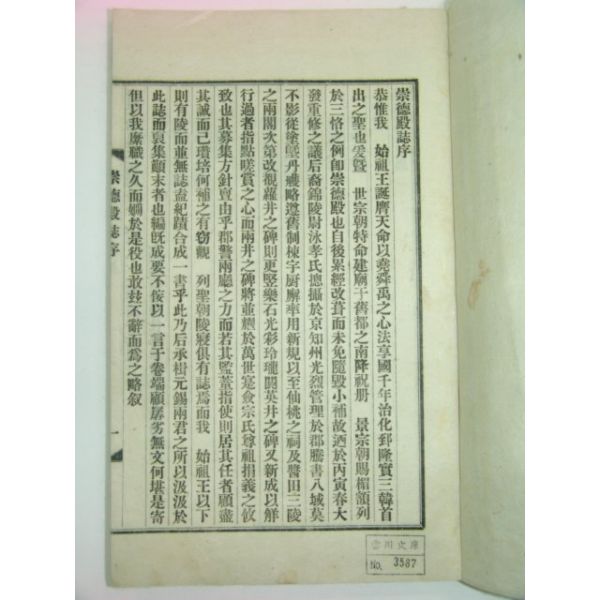 崇德殿誌序
恭惟我 始祖王誕膺天命以堯舜禹之心法享國千年治化郅隆實三韓首
出之聖也爰曁 世宗朝特命建廟于舊都之南降祝册 景宗朝賜楣額列
於三恪之例卽崇德殿也自後累經改葺而未免隨毁小補故迺於丙寅春大
發重修之議后裔錦陵尉泳孝氏摠攝於京知州光烈管理於郡騰書八域莫
不影從塗墍丹雘略遵舊制棟宇厨廨率用新規以至仙桃之祠及譽田三陵
之兩閣次第改觀蘿井之碑則更竪樂石光彩玲瓏閼英井之碑又新成以鮮
行過者指點嗟賞之心而兩井之碑將並 於萬世寔僉宗氏尊祖捐義之攸
致也其募集方針亶由乎郡警兩廳之方而若其監董指使則居其任者顧盡
其誠而己瓊培何補之有竊觀 列聖朝陵寢俱有誌焉而我 始祖王以下
則有陵而並無誌盍紀蹟合成一書乎此乃后承楫元錫兩君之所以汲汲於
此誌而裒集顚末者也編旣成要不侫以一言于卷端顧孱劣無文何堪是寄
但以我縻職之久而嫺於是役也敢玆不辭而爲之略叙
崇德殿誌序
一
川文庫
No. 3587